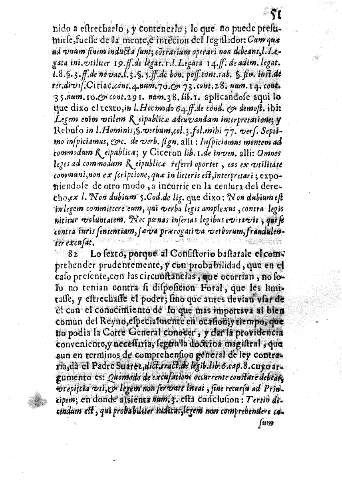 51
nido a estrecharlo, y contenerlo; lo que no puede presu-
mirse, fuesse de la mente, è intecion del legislador: Cum quæ
ad vnum finem inducta sunt, contrarium operari non debeant, l. Le-
gata ini. vtiliter 19. ff. de legat. l. Legata 14. ff. de adim. legat.
l. 8. §. 3. ff. de novac. l. 5. §. 5. ff. de bon. poss. cont. tab. §. fin. inst. de
rer. divis. Ciriac. cont. num. 70. & 73. cont. 28. num. 14. cont.
35. num. 10. & cont. 291. num. 38. lib. 1. aplicandose aqui lo
que dixo el texto, in l. Hoc modo 64. ff. de cond. & demost. ibi:
Legem enim vtilem Reipublicæ adiuvandam interpretatione; y
Rebufo in l. Hominis, §. verbum, col. 3. fol. mihi 77. vers. Septi-
mo inspiciamus, &c. de verb. sign. alli: Inspiciamus mentem ad
commodum Reipublicæ; y Ciceron lib. 1. de inven. alli: Omnes
leges ad commodum Reipublicæ referri oportet, eas ex vtilitate
communi, non ex scriptione, quæ in literis est, interpretari; expo-
niendose de otro modo, a incurrir en la censura del dere-
cho, ex l. Non dubium 5. Cod. de leg. que dixo: Non dubium est
in legem committere eum, qui verba legis amplexus, contra legis
nititur voluntatem. Nec pœnas insertas legibus evitavit, qui se
contra iuris sententiam, sæva prærogativa verborum, fraudulen-
ter excusat.
82 Lo sexto, porque al Consistorio bastarale el com-
prehender prudentemente, y con probabilidad, que en el
caso presente, con las circunstancias, que ocurrian, no so-
lo no tenian contra si disposition Foral, que les limi-
tasse, y estrechasse el poder; sino que antes devian vsar de
èl con el conocimiento de lo que mas importava al bien
comun del Reyno, especialmente en ocasion, y tiempo, que
no podia la Corte General conocer, y dar la providencia
conveniente, y necessaria, segun la doctrina magistral, que
aun en terminos de comprehension general de ley contra-
ria, dà el Padre Suarez, dict. tract. de legib. lib. 6. cap. 8. cuyo ar-
gumento es: Quomodo de excusatione occurrente constare debeat,
vt epicheia vti, & legem non servare liceat, sine recursu ad Prin-
cipem; en donde assienta num. 3. esta conclusion: Tertio di-
cendum est, qui probabiliter iudicat, legem non comprehendere ca-
sum